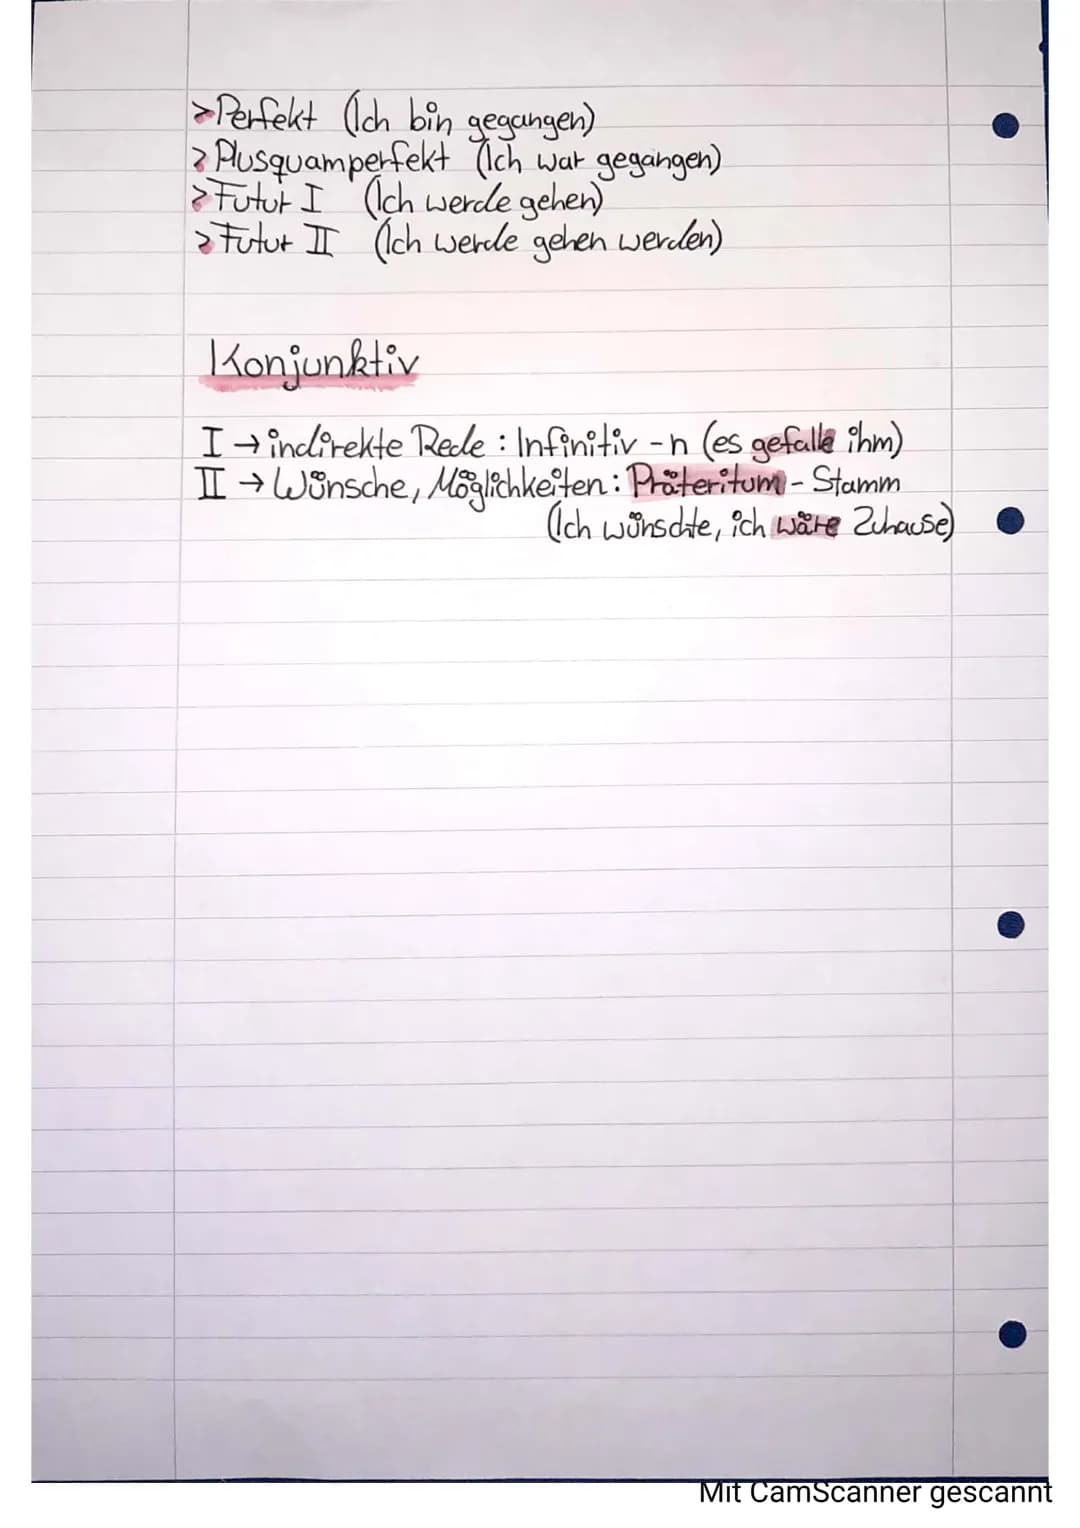 >Perfekt (Ich bin gegangen)
>Plusquamperfekt (Ich war gegangen)
>Futur I (Ich werde gehen)
>Futur II (Ich werde gehen werden)
Konjunktiv
I → indirekte Rede : Infinitiv -n (es gefalle ihm)
II → Wünsche, Möglichkeiten: Präteritum - Stamm
(Ich wünschte, ich wäre Zuhause)
Mit CamScanner gescannt